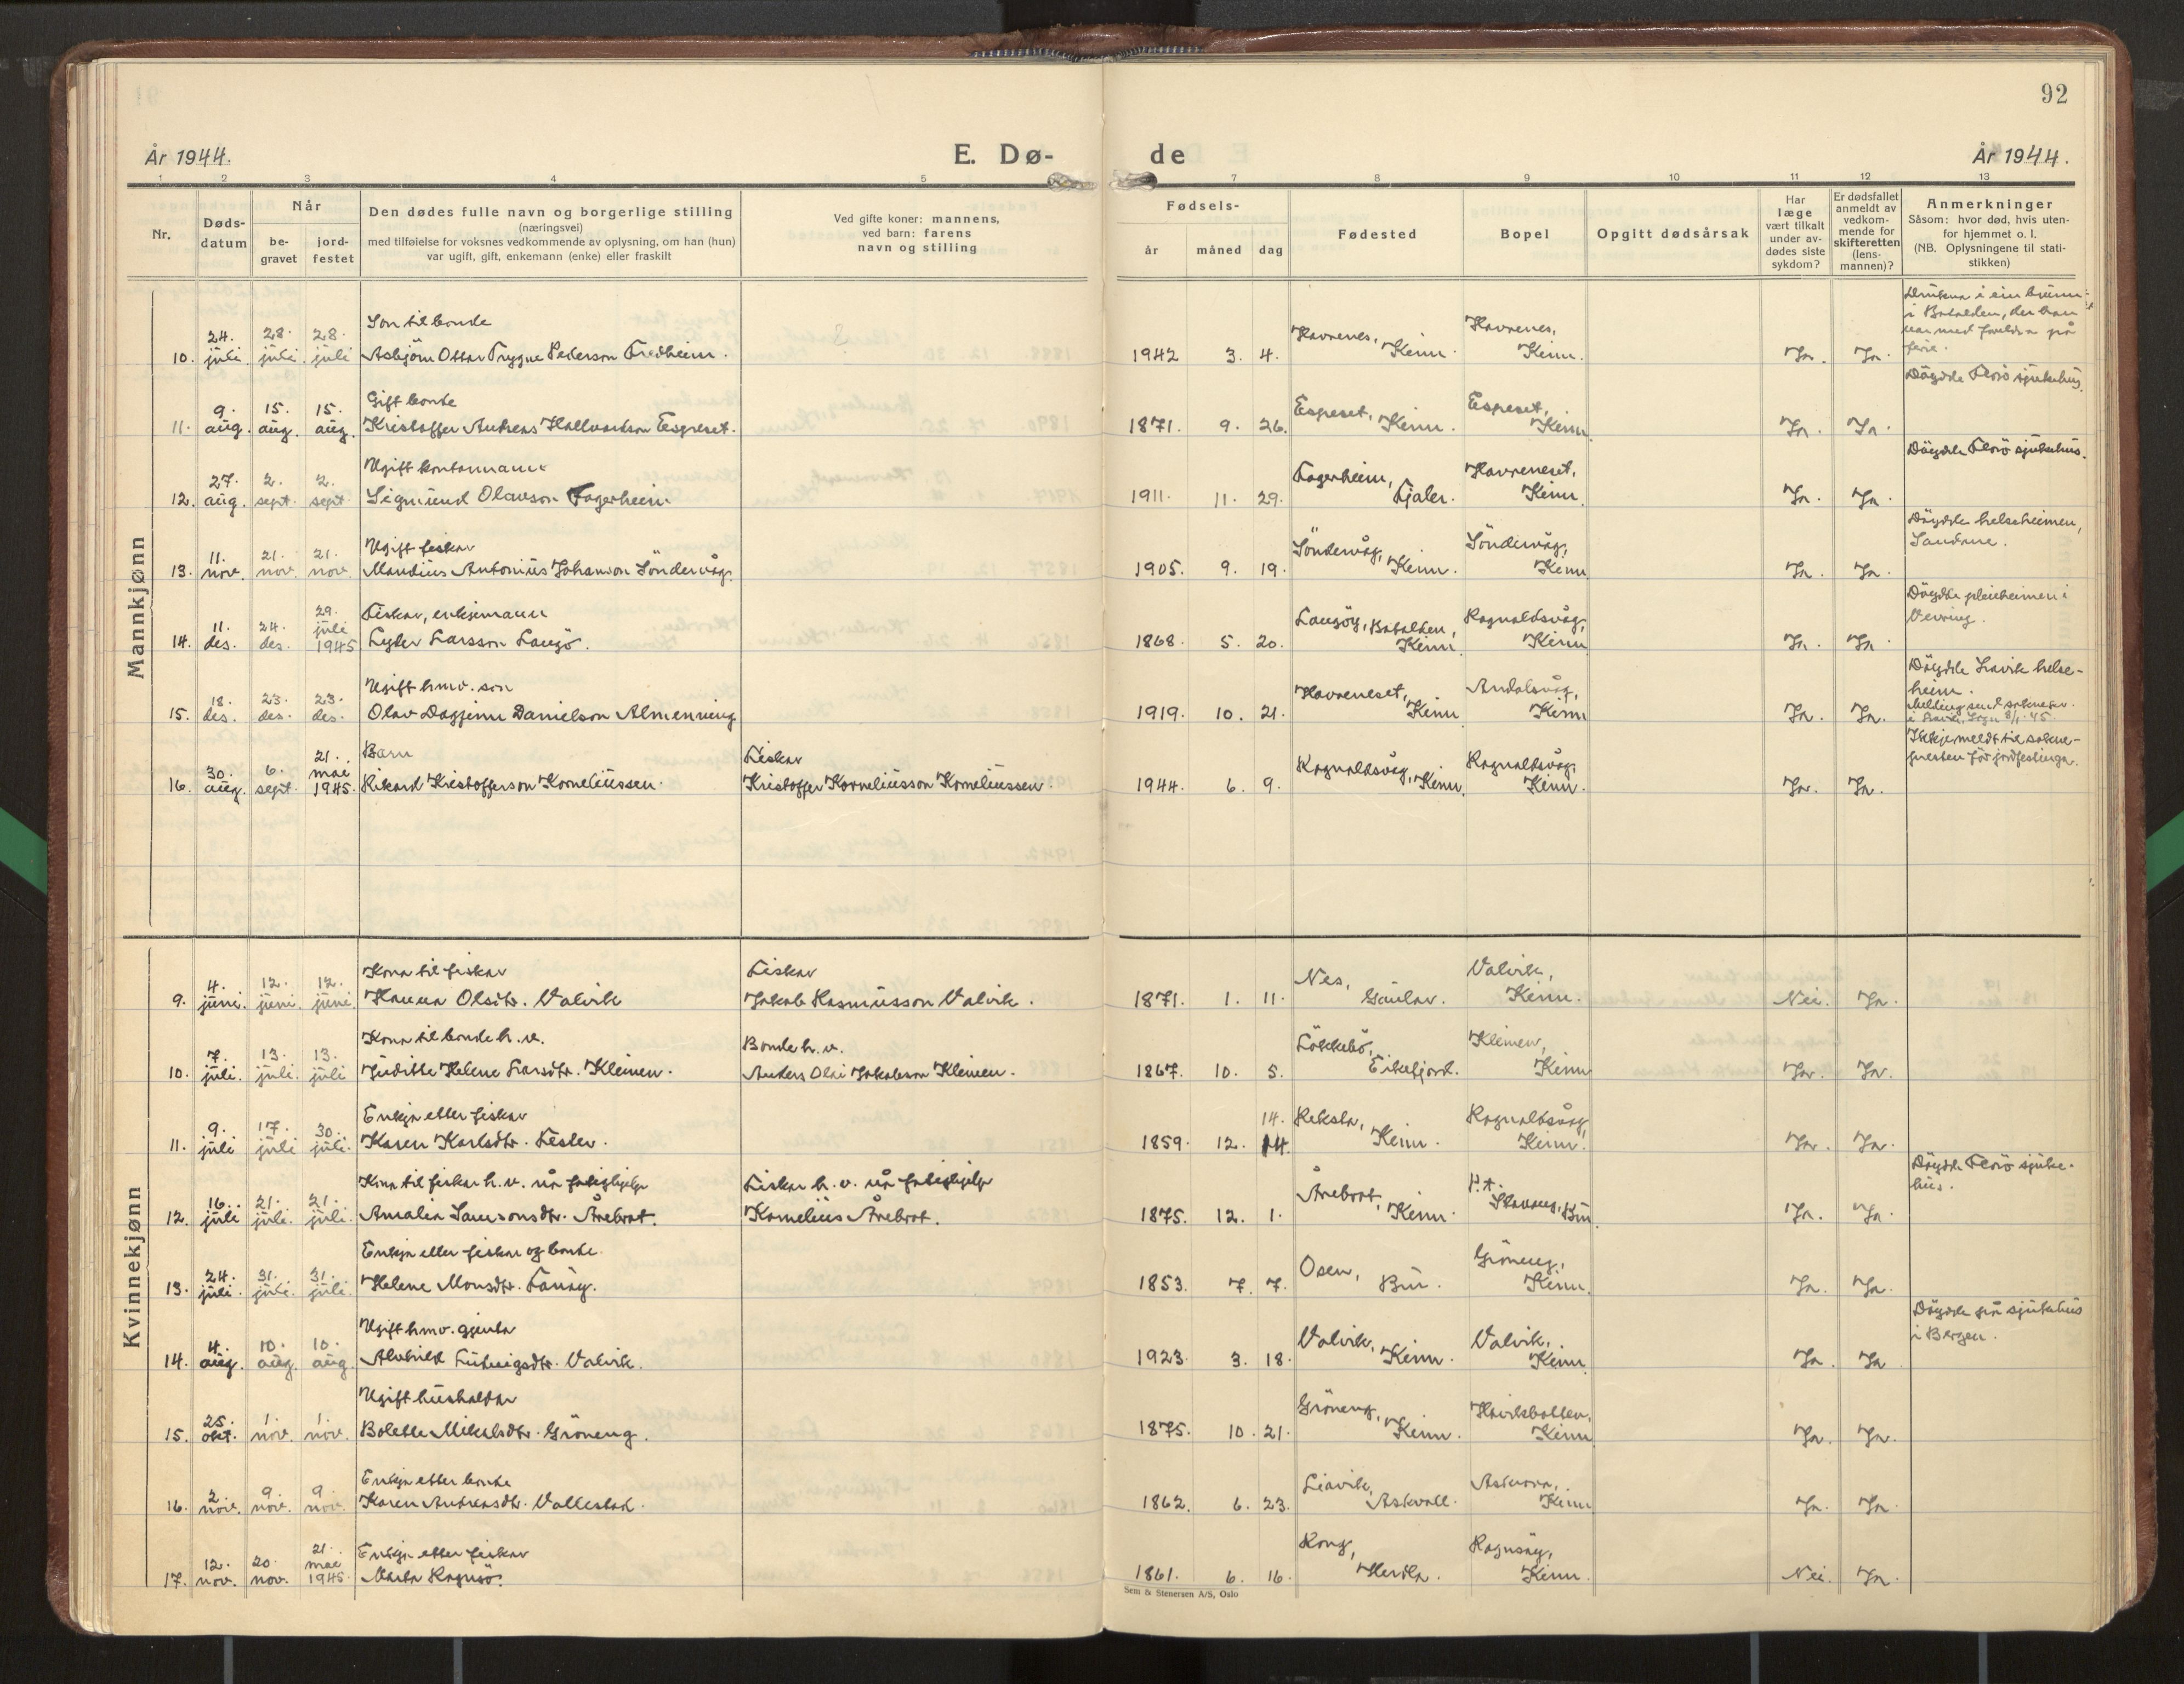 92
År 1944.
E. Dø-
de
År 1944.
1 2 3 4 5 7 8 9 10 11 12 13
Nr.
Døds-
datum
Når
be-
gravet
jord-
festet
Den dødes fulle navn og borgerlige stilling
(næringsvei)
med tilføielse for voksnes vedkommende av oplysning, om han (hun)
var ugift, gift, enkemann (enke) eller fraskilt
Ved gifte koner: mannens,
ved barn: farens
navn og stilling
Fødsels-
år måned dag
Fødested
Bopel
Opgitt dødsårsak
Har
læge
vært tilkalt
under av-
dødes siste
sykdom?
Er dødsfallet
anmeldt av
vedkom-
mende for
skifteretten
(lens-
mannen)?
Anmerkninger
Såsom: hvor død, hvis uten-
for hjemmet o. l.
(NB. Oplysningene til stati-
stikken)
Mannkjønn
24. 28. 28. Son til bonde Havrenes, Havrenes, Drukna i ein brunn
i Batalden, der han
var med foreldra på
ferie.
10. juli. juli. juli Asbjörn Ottar Trygve Pederson Fredheim. 1942 3. 4. Kinn. Kinn. Ja. Ja.
9. 15. 15. Gift bonde Espeset, Espeset, Döydde Florö sjukehus.
11. aug. aug. aug. Kristoffer Andreas Hallvardson Espeset. 1871. 9. 26. Kinn. Kinn. Ja. Ja.
27. 2. 2. Ugift kontormann Fagerheim, Havreneset, Döydde Florö sjukehus.
12. aug. sept. sept Sigmund Olavson Fagerheim 1911. 11. 29. Fjaler. Kinn. Ja. Ja.
11. 21. 21. Ugift fiskar Söndervåg, Söndervåg, Döydde helseheimen,
Sandane.
13. nov. nov. nov. Mandius Antonius Johanson Söndervåg. 1905. 9. 19. Kinn. Kinn Ja. Ja.
11. 24. 29. juli Fiskar, enkjemann Langöy, Batalden, Ragnaldsvåg, Döydde pleieheimen i
Vevring.
14. des. des. 1945 Lyder Larsson Langö. 1868. 5. 20. Kinn. Kinn Ja. Ja.
18. 23. 23. Ugift hmv. son Havreneset, Andalsvåg, Döydde Lavik helse-
heim.
Melding send sokneprv.
i Lavik, Sogn 8/1. 45.
15. des. des. des. Olav Dagfinn Danielson Almenning 1919. 10. 21. Kinn Kinn Ja. Ja.
30. 6. 21. mai Barn Fiskar Ragnaldsvåg, Ragnaldsvåg, Ikkje meldt til sokne-
presten för jordfestinga.
16. aug. sept. 1945. Rikard Kristofferson Korneliussen. Kristoffer Korneliusson Korneliussen. 1944. 6. 9. Kinn. Kinn. Ja. Ja.
Kvinnekjønn
4. 12. 12. Kona til fiskar Fiskar Nes, Valvik,
9. juni. juni. juni. Hanna Olsdtr. Valvik Jakob Rasmusson Valvik. 1871. 1. 11. Gaular. Kinn. Nei. Ja.
7. 13. 13. Kona til bonde h. v. Bonde h. v. Lökkebö, Kleiven,
10. juli. juli. juli Juditte Helene Larsdtr. Kleiven. Anders Olai Jakobson Kleiven. 1867. 10. 5. Eikefjord. Kinn Ja. Ja.
9. 17. 30. Enkja etter fiskar 14. Reksta, Ragnaldsvåg,
11. juli juli juli. Karen Karlsdtr. Fester. 1859. 12. 14. Kinn. Kinn. Ja. Ja.
16. 21. 21. Kona til fiskar h. v. nå fatighjelp Fiskar h. v. nå fatighjelp Årebrot, P.t. Döydde Florö sjuke-
hus.
12. juli juli. juli. Amalia Samsonsdtr. Årebrot. Kornelius Årebrot. 1875. 12. 1. Kinn. Stavang, Bru Ja. Ja.
24. 31. 31. Enkja etter fiskar og bonde. Osen, Gröneng,
13. juli. juli. juli. Helene Monsdtr. 1853. 7. 7. Bru. Kinn. Ja. Ja.
4. 10. 10. Ugift hmv. gjenta Valvik, Valvik, Döydde på sjukehus
i Bergen.
14. aug. aug. aug. Alvhild Ludvigsdtr. Valvik. 1923. 3. 18. Kinn. Kinn Ja. Ja
25. 1. 1. Ugift hushaldar Gröneng, Havikbotten,
15. okt. nov. nov. Bolette Mikalsdtr. Gröneng. 1875. 10. 21. Kinn. Kinn Ja. Ja.
2. 9. 9. Enkja etter bonde Liavik, Askvora,
16. nov. nov. nov. Karen Andreasdtr. Vallestad. 1862. 6. 23. Askvoll. Kinn Ja. Ja.
12. 20. 21. mai Enkja etter fiskar Rong, Ragnsöy,
17. nov. nov. 1945. Marta Ragnsö. 1861. 6. 16. Herdla. Kinn. Nei. Ja.
Sem & Stenersen A/S, Oslo